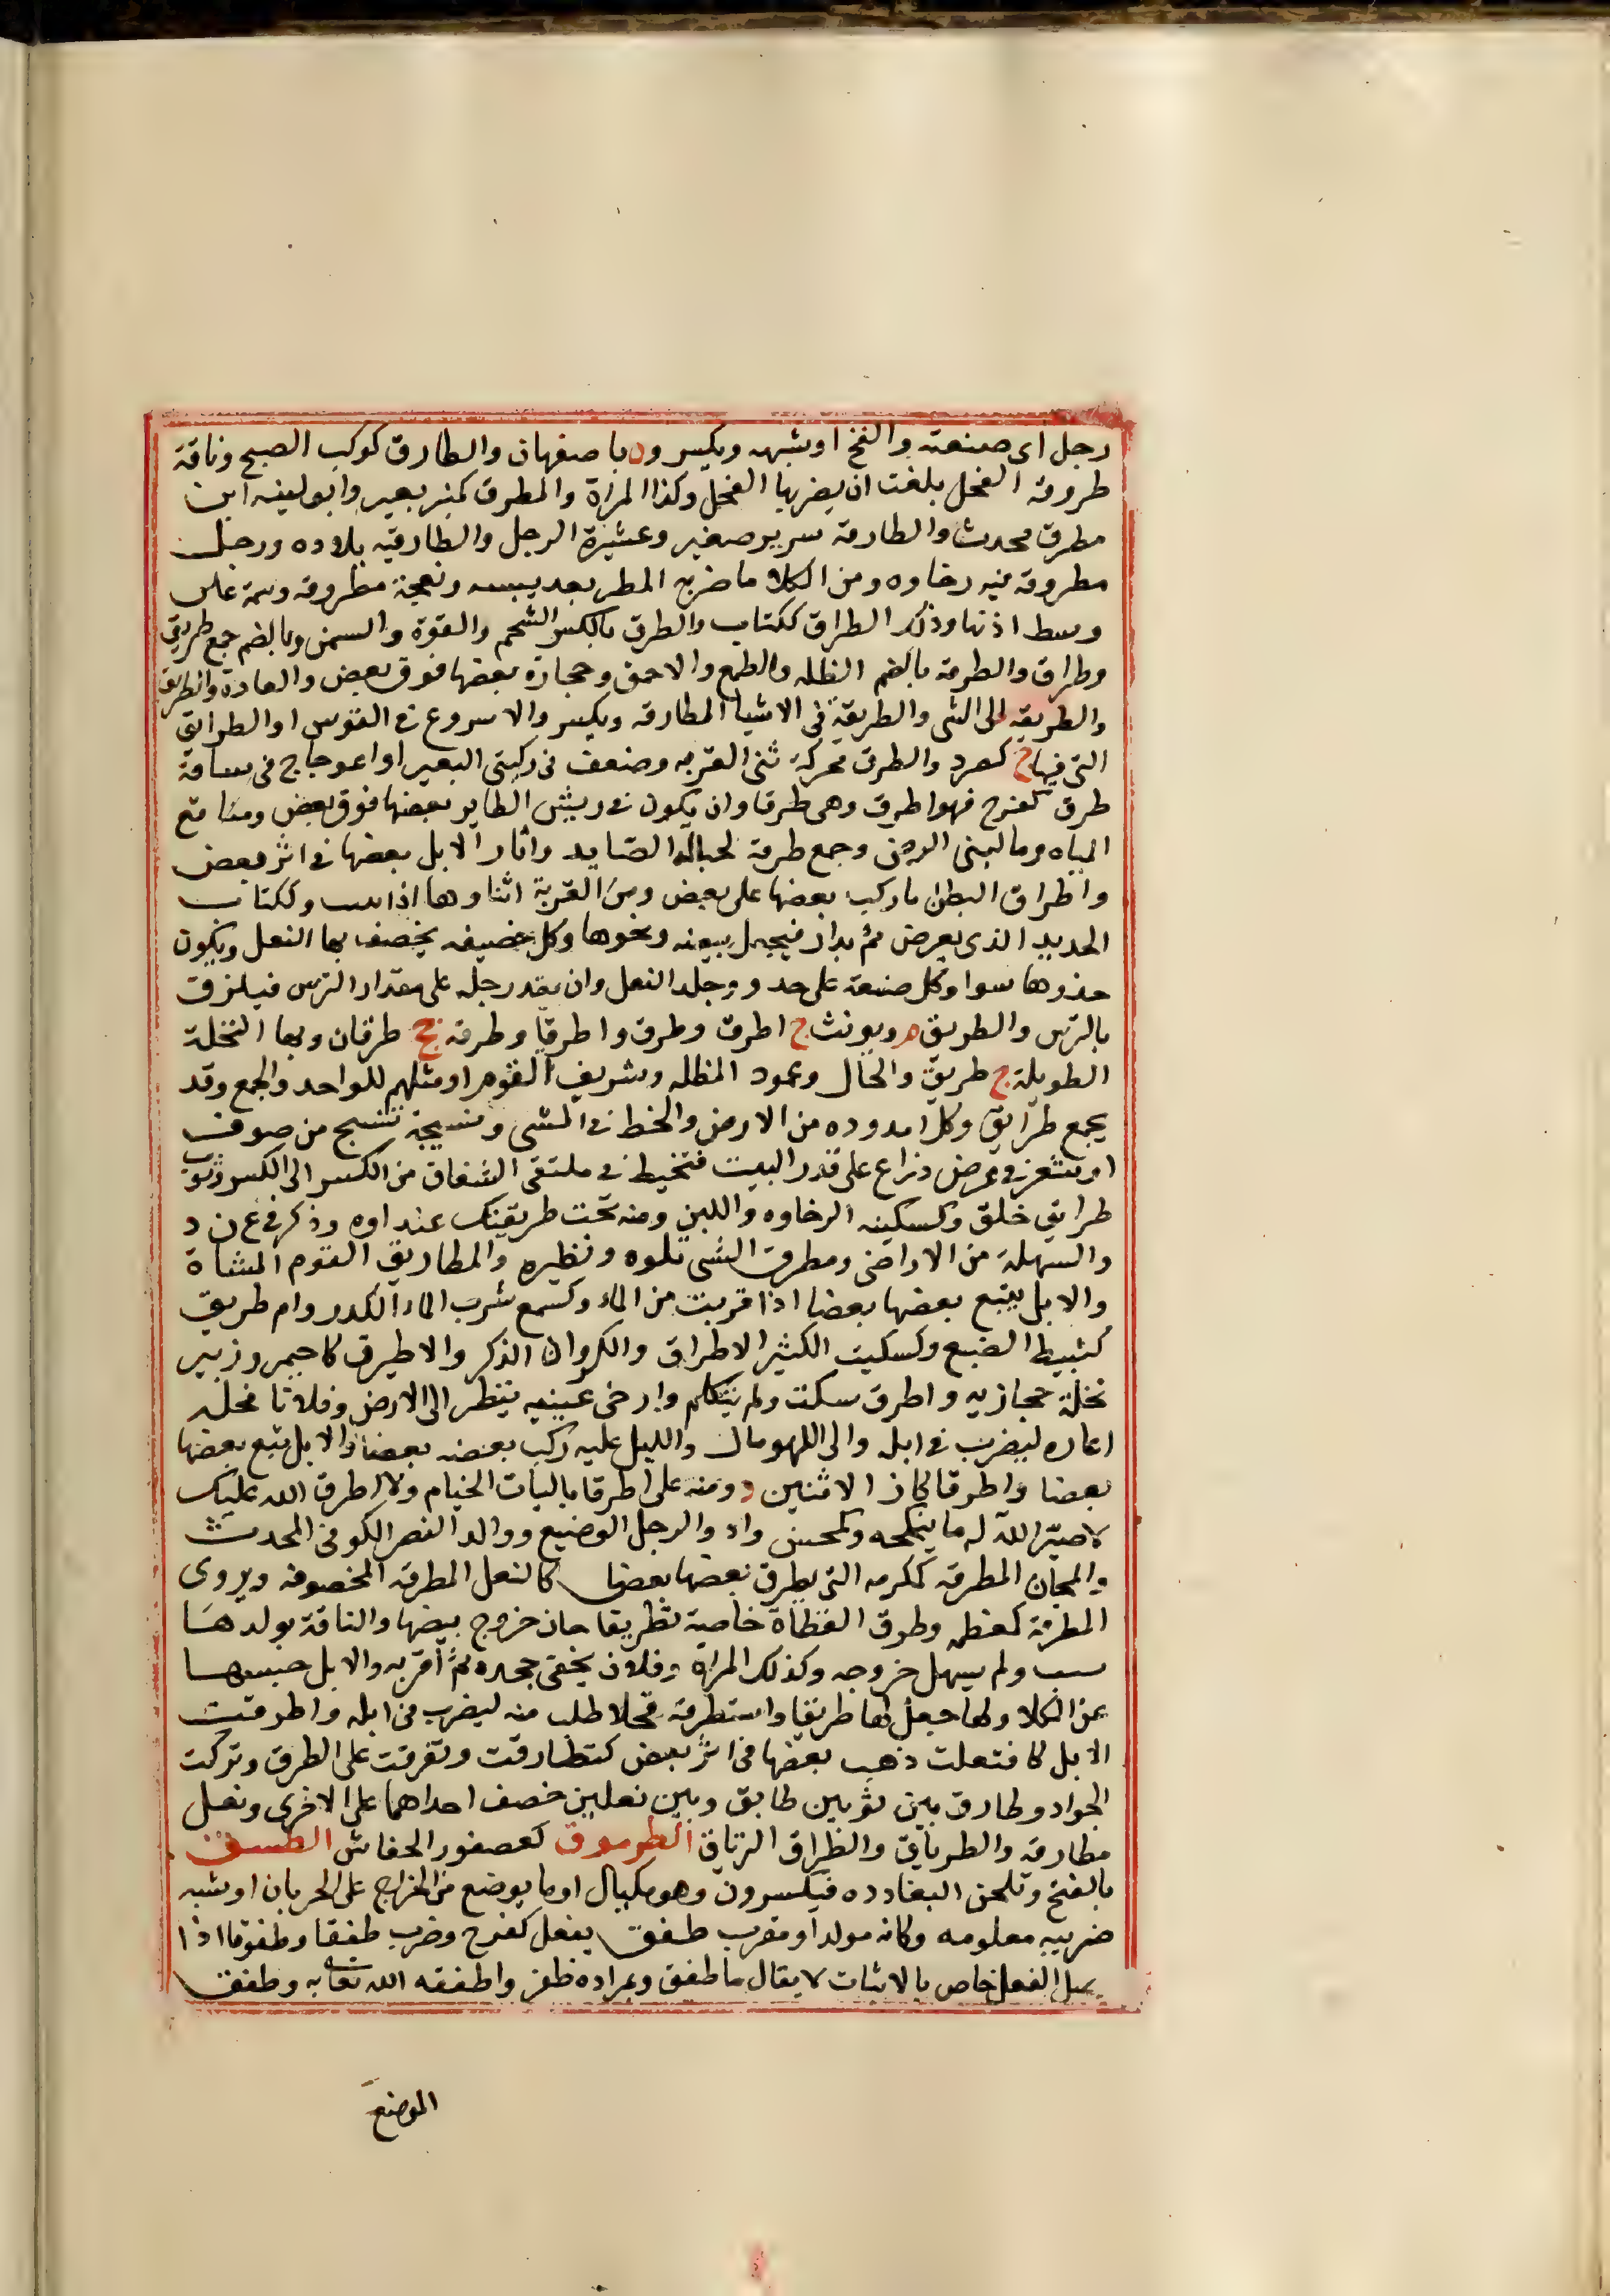 رجل اى صنعته والفخ او شبهه ويكسر وه باصفهان والطارق كوكب الصبح وناقة
طروقة الفحل بلغت ان يضربها الفحل وكذا المراة والمطرق كمنبر بعير وابو لينه ابن
مطرق محدث والطارقة سرير صغير وعشيرة الرجل والطارقيه بلاوده ورجل
مطروقة فيه رخاوه ومن الكلا ما ضربه المطر بعد يبسه ونعجة مطروقه وسمة على
وسط اذنها وذلك الطراق ككتاب والطرق بالكسر الشحم والقوة والسمن وبالضم جمع طريق
وطراق والطرقة بالضم الظلمه والطمع والاحمق وحجارة بعضها فوق بعض والعادة والطريق
والطريقه الى الشى والطريقة فى الاشيا المطارقه ويكسر والاسروع فى القوس او الطرايق
التى فيها ج كصرد والطرق محركة ثنى القربه وضعف فى ركبتى البعير او اعوجاج فى ساقه
طرق كفرح فهو اطرق وهى طرقا وان يكون فى ريش الطاير بعضها فوق بعض ومناقع
المياه وما لبنى الوحن وجمع طرقة لحبالة الصايد واثار الابل بعضها فى اثر بعض
واطراق البطن ما ركب بعضها على بعض ومن القربة اثناوها اذا وككتاب
الحديد الذى يعرض ثم يدار فيجعل بيضه ونحوها وكل خصيفه يخصف بها النعل ويكون
حذوها سوا وكل صنعة على حده وجلد النعل وان يقد رجله على مقدار الترس فيلزق
بالترس والطريق م ويونث ج اطرق وطرق واطرقا وطرقه جج طرقات وبها النخلة
الطويلة ج طريق والحال وعمود المظله وشريف القوم او مثلهم للواحد والجمع وقد
يجمع طرايق وكل امدوده من الارض والخط فى المشى ونسيجة تنسج من صوف
او شعر فى عرض ذراع على قدر البيت فتخيط فى ملتقى الشقاق من الكسر الى الكسر وثوب
طرايق خلق وكسكينه الرخاوه واللين ومنه تحت طريقتك عنداوه وذكر فى ع ن د
والسهلة من الاراضى ومطرق الشى تلوه ونظيره والمطاريق القوم المشاة
والابل يتبع بعضها بعضا اذا قربت من الماء وكسمع شرب الماء الكدر وام طريق
كقبيط الضبع وكسكيت الكثير الاطراق والكروان الذكر والاطيرق كاحيمر وزبير
نخلة حجازيه واطرق سكت ولم يتكلم وارخى عينيه ينظر الى الارض وفلانا فحله
اعاره ليضرب فى ابله والى اللهو مال والليل عليه ركب بعضه بعضا والابل تبع بعضها
بعضا واطرقا كاز الاثنين د ومنه على اطرقا باليات الخيام ولا اطرق الله عليك
لا صير الله له ما ينكحه وكمحسن واد والرجل الوضيع ووالد النضر الكوفى المحدث
والمجان المطرقة كمكرمه التى يطرق بعضها بعضا كالنعل المطرقة المخصوفه ويروى
المطرقة كمعظمه وطرق القطاة خاصية تطريقا حان خروج بيضها والناقة بولدها
ولم يسهل خروجه وكذلك المراة وفلان بحقى جحده ثم اقر به والابل حبسها
عن الكلا ولها جعل لها طريقا واستطرقه فحلا طلب منه ليضرب فى ابله واطرقت
الابل كافتعلت ذهب بعضها فى اثر بعض كتطارقت وتفرقت على الطرق وتركت
الجواد وطارق بين ثوبين طابق وبين نعلين خصف احداهما على الاخرى ونعل
مطارقه والطرياق والطراق الترياق الطرموق كعصفور الخفاش الطسق
بالفتح وتلحن البغادده فيكسرون وهو مكيال او ما يوضع من الخراج على الجربان او شبه
ضريبه معلومه وكانه مولد او معرب طفق يفعل كفرح وضرب طفقا وطفوقا اذا
الفعل خاص بالاثبات لا يقال ما طفق وبمراده ظفر واطفقه الله تعالى به وطفق
الموضع